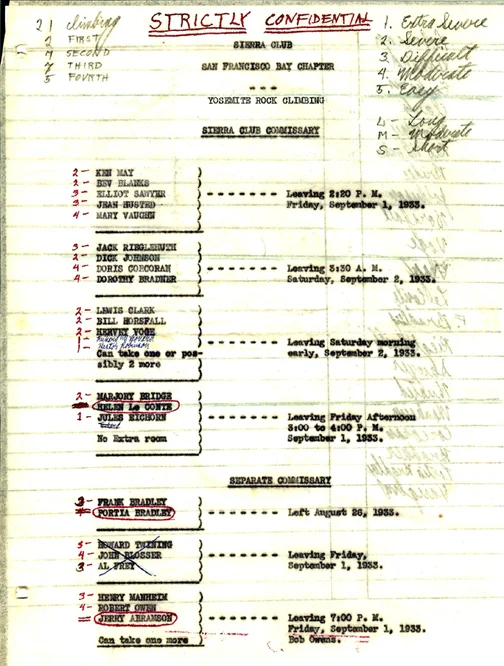 21 climbing
2 FIRST
7 SECOND
7 THIRD
5 FOURTH
STRICTLY CONFIDENTIAL
1. Extra Severe
2. Severe
3. Difficult
4. Moderate
5. Easy
L - Long
M - Moderate
S - Short
SIERRA CLUB
SAN FRANCISCO BAY CHAPTER
- - -
YOSEMITE ROCK CLIMBING
SIERRA CLUB COMMISSARY
2 - KEN MAY
2 - BEV BLANKS
3 - ELLIOT SAWYER
3 - JEAN HUSTED
4 - MARY VAUGHN
- - - - - - - Leaving 2:20 P. M.
Friday, September 1, 1933.
3 - JACK RIEGLEHUTH
2 - DICK JOHNSON
4 - DORIS CORCORAN
4 - DOROTHY BRADNER
- - - - - - - Leaving 3:30 A. M.
Saturday, September 2, 1933.
2 - LEWIS CLARK
2 - BILL HORSFALL
2 - HERVEY VOGE
1 -
1 - Robinson
Can take one or pos-
sibly 2 more
- - - - - - - Leaving Saturday morning
early, September 2, 1933.
2 - MARJORY BRIDGE
HELEN Le CONTE
1 - JULES EICHORN
No Extra room
- - - - - - - Leaving Friday Afternoon
3:00 to 4:00 P. M.
September 1, 1933.
SEPARATE COMMISSARY
3 - FRANK BRADLEY
PORTIA BRADLEY
- - - - - - - Left August 26, 1933.
3 - HOWARD TWINING
4 - JOHN BLOSSER
3 - AL FREY
- - - - - - - Leaving Friday,
September 1, 1933.
3 - HENRY MANHEIM
4 - ROBERT OWEN
JERRY ABRAMSON
Can take one more
- - - - - - - Leaving 7:00 P. M.
Friday, September 1, 1933.
Bob Owens.